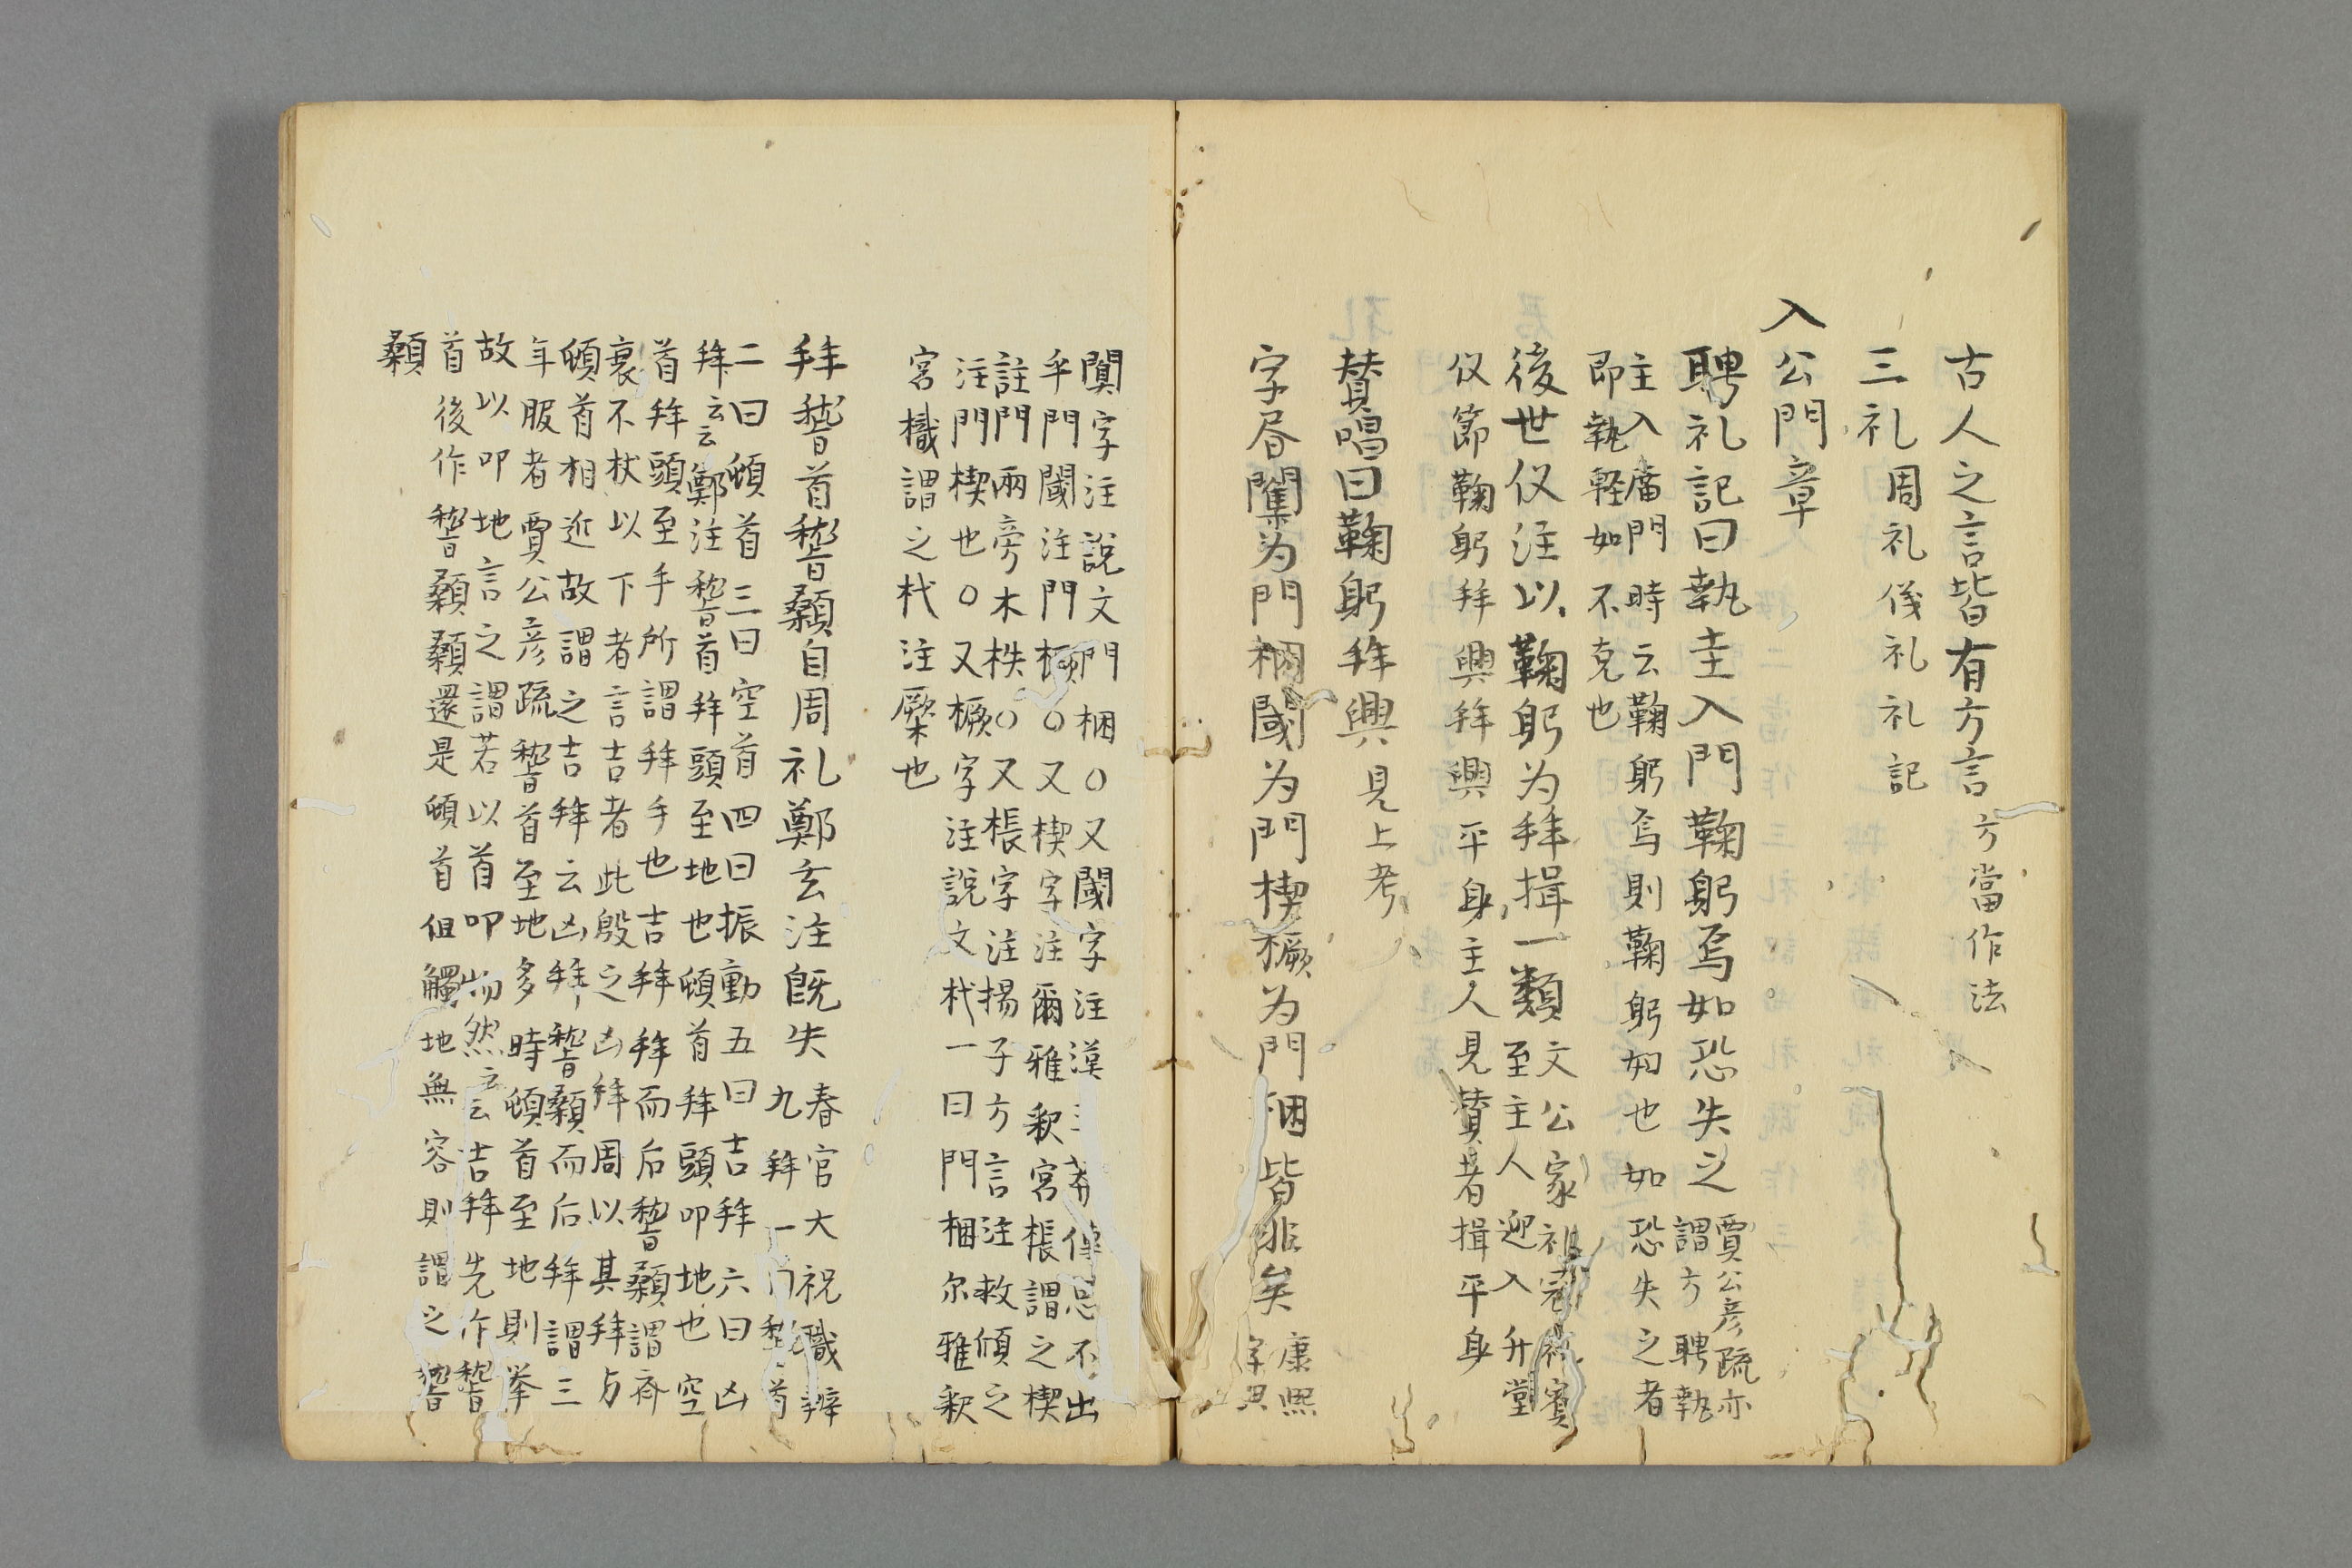 古人之言皆有方言方當作法
三礼周礼儀礼礼記
入公門章
聘礼記曰執圭入門鞠躬焉如恐失之賈公彦疏亦
謂方聘執
主入庿門時云鞠躬焉則鞠躬如也如恐失之者
即執軽如不克也
後世仪注以鞠躬为拜揖一類文公家礼冠礼賓
至主人迎入升堂
仪節鞠躬拜興拜興平身主人見賛者揖平身
賛唱曰鞠躬拜興見上考
字㫺闑为門梱閾为門楔橛为門梱皆非矣康熙
字典
闑字注說文門梱〇又閾字注漢王莽傳思不出
乎門閾注門橛〇又楔字注爾雅釈宮棖謂之楔
註門兩旁木柣〇又棖字注揚子方言注救傾之
注門楔也〇又橛字注說文杙一曰門梱尔雅釈
宮樴謂之杙注橜也
拜䭫首䭫顙自周礼鄭玄注既失春官大祝職辧
九拜一曰䭫首
二曰頓首三曰空首四曰振動五曰吉拜六曰凶
拜云云鄭注䭫首拜頭至地也頓首拜頭叩地也空
首拜頭至手所謂拜手也吉拜拜而后䭫顙謂齊
衰不杖以下者言吉者此殷之凶拜周以其拜与
頓首相近故謂之吉拜云凶拜䭫顙而后拜謂三
年服者賈公彦疏䭫首至地多時頓首至地則挙
故以叩地言之謂若以首叩物然云云吉拜先作䭫
首後作䭫顙顙還是頓首但觸地無容則謂之䭫
顙